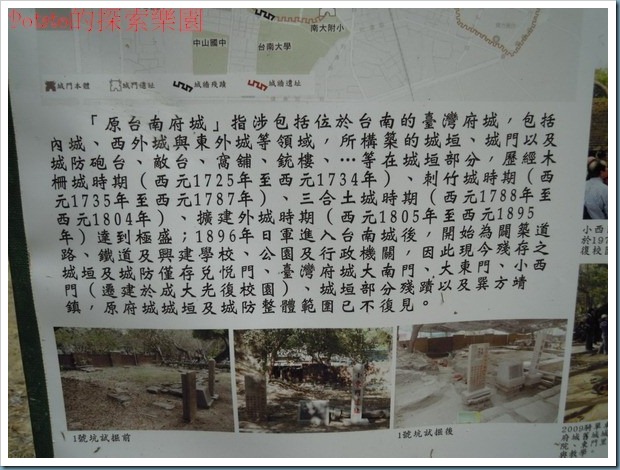 Potato的探索樂園
南大附小
中山國中
台南大學
城門本體 城門遺址 城牆殘蹟 城牆遺址
「原台南府城」指涉包括位於台南的臺灣府城，包括
內城、西外城與東外城等領域，所構築的城垣、城門以及
城防砲台、敵台、窩鋪、銃樓、…等在城垣部分，歷經木
柵城時期（西元1725年至西元1734年）、刺竹城時期（西
元1735年至西元1787年）、三合土城時期（西元1788年至
西元1804年）、擴建外城時期（西元1805年至西元1895
年）達到極盛；1896年日軍進入台南城後，開始為闢築道
路、鐵道及興建學校、公園及行政機關，因此現今殘存之
城垣及城防僅存兌悅門、臺灣府城大南門、大東門、小西
門（遷建於成大光復校園）、城垣部分殘蹟以及巽方靖
鎮，原府城城垣及城防整體範圍已不復見。
小西
於197
復校園
1號坑試掘前
1號坑試掘後